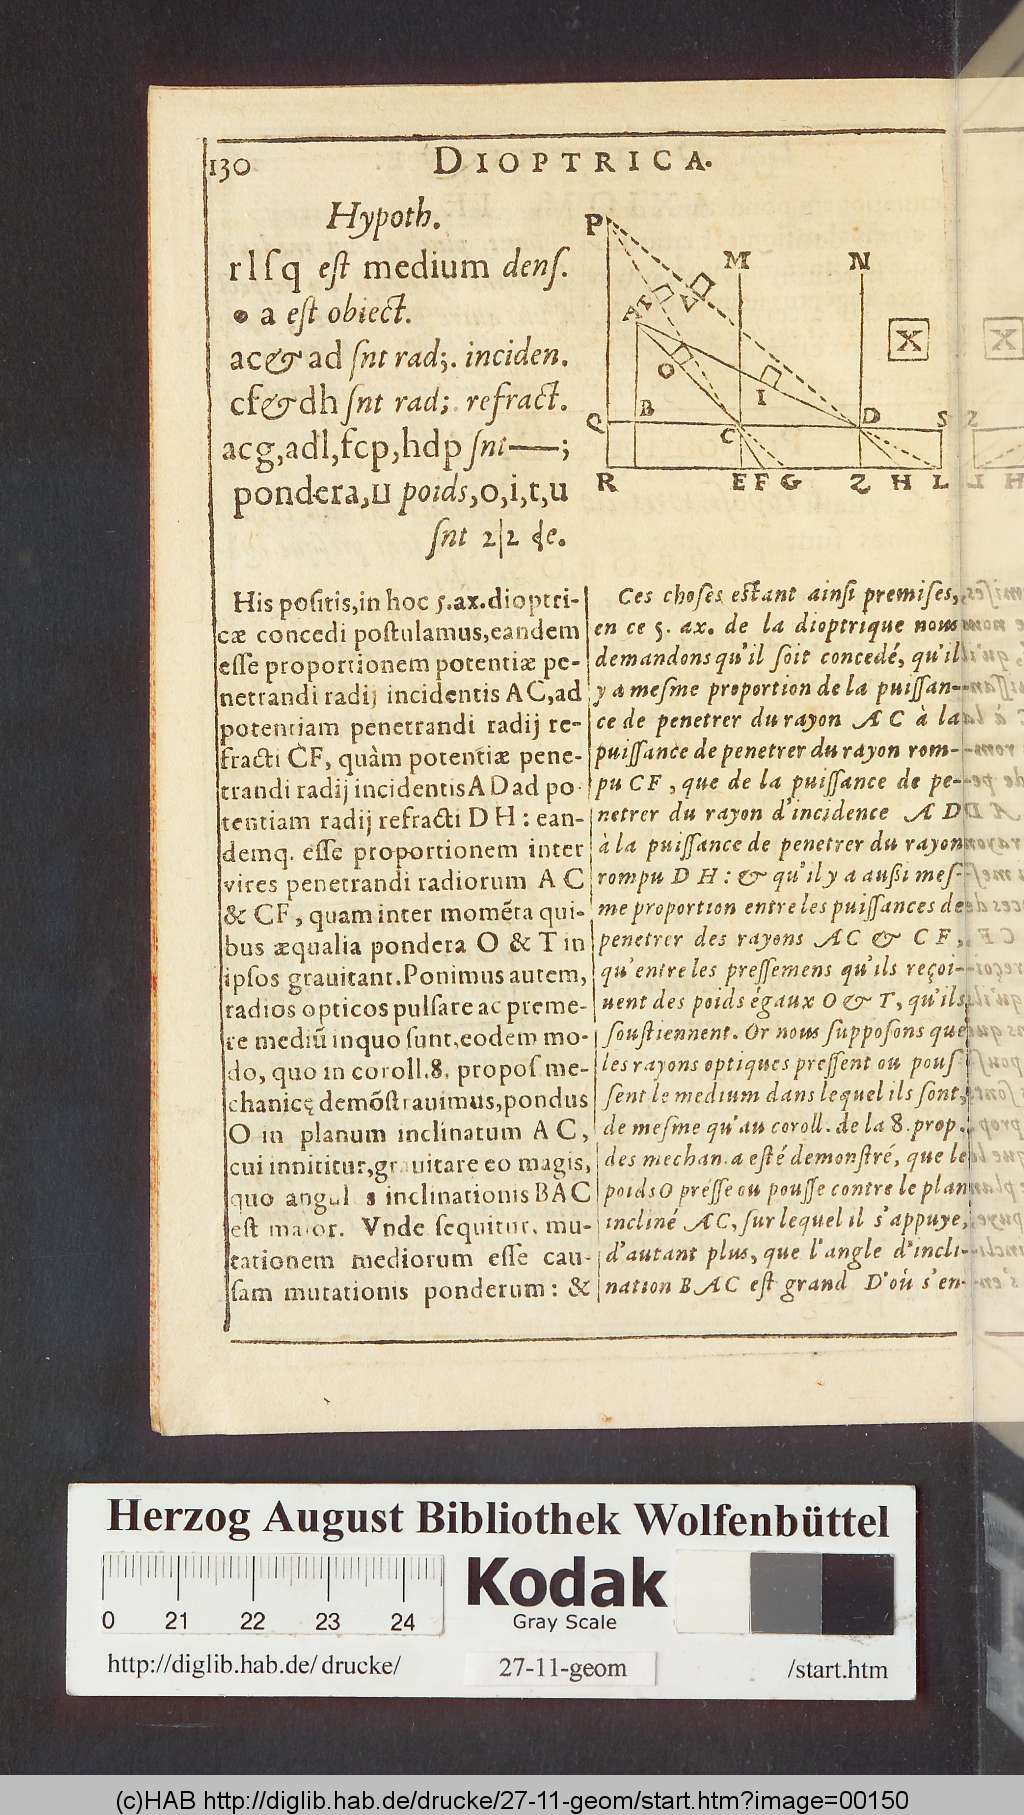 130
DIOPTRICA.
Hypoth.
rlſq eſt medium denſ.
a eſt obiect.
ac & ad ſnt rad;. inciden.
cf & dh ſnt rad; refract.
acg, adl, fcp, hdp ſnt —;
pondera, ⊔ poids, o, i, t, u
ſnt 2|2 de.
P
M
N
A
T
V
X
O
I
Q
B
C
D
S
R
E F G
Z H L
His poſitis, in hoc 5. ax. dioptri-
cæ concedi poſtulamus, eandem
eſſe proportionem potentiæ pe-
netrandi radij incidentis AC, ad
potentiam penetrandi radij re-
fracti CF, quàm potentiæ pene-
trandi radij incidentis AD ad po
tentiam radij refracti DH: ean-
demq. eſſe proportionem inter
vires penetrandi radiorum AC
& CF, quam inter momẽta qui-
bus æqualia pondera O & T in
ipſos grauitant. Ponimus autem,
radios opticos pulſare ac preme-
re mediũ in quo ſunt, eodem mo-
do, quo in coroll. 8. propoſ me-
chanicę demõſtrauimus, pondus
O in planum inclinatum AC,
cui innititur, grauitare eo magis,
quo angul s inclinationis BAC
eſt maior. Vnde ſequitur, mu-
tationem mediorum eſſe cau-
ſam mutationis ponderum: &
Ces choſes eſtant ainſi premiſes,
en ce 5. ax. de la dioptrique nous
demandons qu'il ſoit concedé, qu'il
y a meſme proportion de la puiſſan-
ce de penetrer du rayon AC à la
puiſſance de penetrer du rayon rom-
pu CF, que de la puiſſance de pe-
netrer du rayon d'incidence AD
à la puiſſance de penetrer du rayon
rompu DH: & qu'il y a außi meſ-
me proportion entre les puiſſances de
penetrer des rayons AC & CF,
qu'entre les preſſemens qu'ils reçoi-
uent des poids égaux O & T, qu'ils
ſouſtiennent. Or nous ſuppoſons que
les rayons optiques preſſent ou pouſ
ſent le medium dans lequel ils ſont,
de meſme qu'au coroll. de la 8. prop.
des mechan. a eſté demonſtré, que le
poids O preſſe ou pouſſe contre le plan
incliné AC, ſur lequel il s'appuye,
d'autant plus, que l'angle d'incli-
nation BAC eſt grand D'où s'en-
Herzog August Bibliothek Wolfenbüttel
0 21 22 23 24
Kodak
Gray Scale
http://diglib.hab.de/drucke/
27-11-geom
/start.htm
(c)HAB http://diglib.hab.de/drucke/27-11-geom/start.htm?image=00150